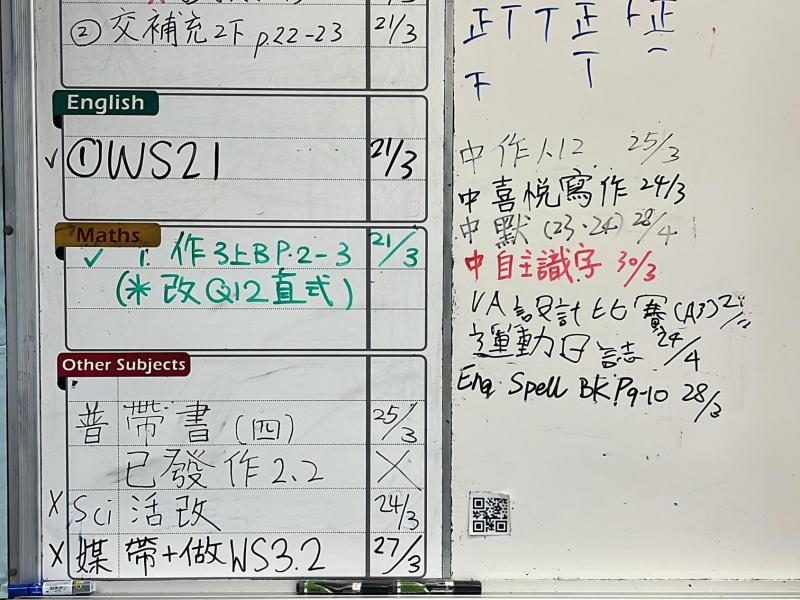 ② 交補充2下 p.22-23 21/3
English
✓ ①WS21 21/3
Maths
✓ 1. 作3上B P.2-3 21/3
(* 改Q12直式)
Other Subjects
普 帶書(四) 25/3
已發作2.2 X
X Sci 活改 24/3
X 媒 帶+做WS3.2 27/3
正 T T 正 正
下
中作 25/3
中喜悅寫作 24/3
中默(23.24) 28/4
中自主識字 30/3
VA設計比賽(A3)
運動日誌 24/4
Eng Spell BK P9-10 28/3